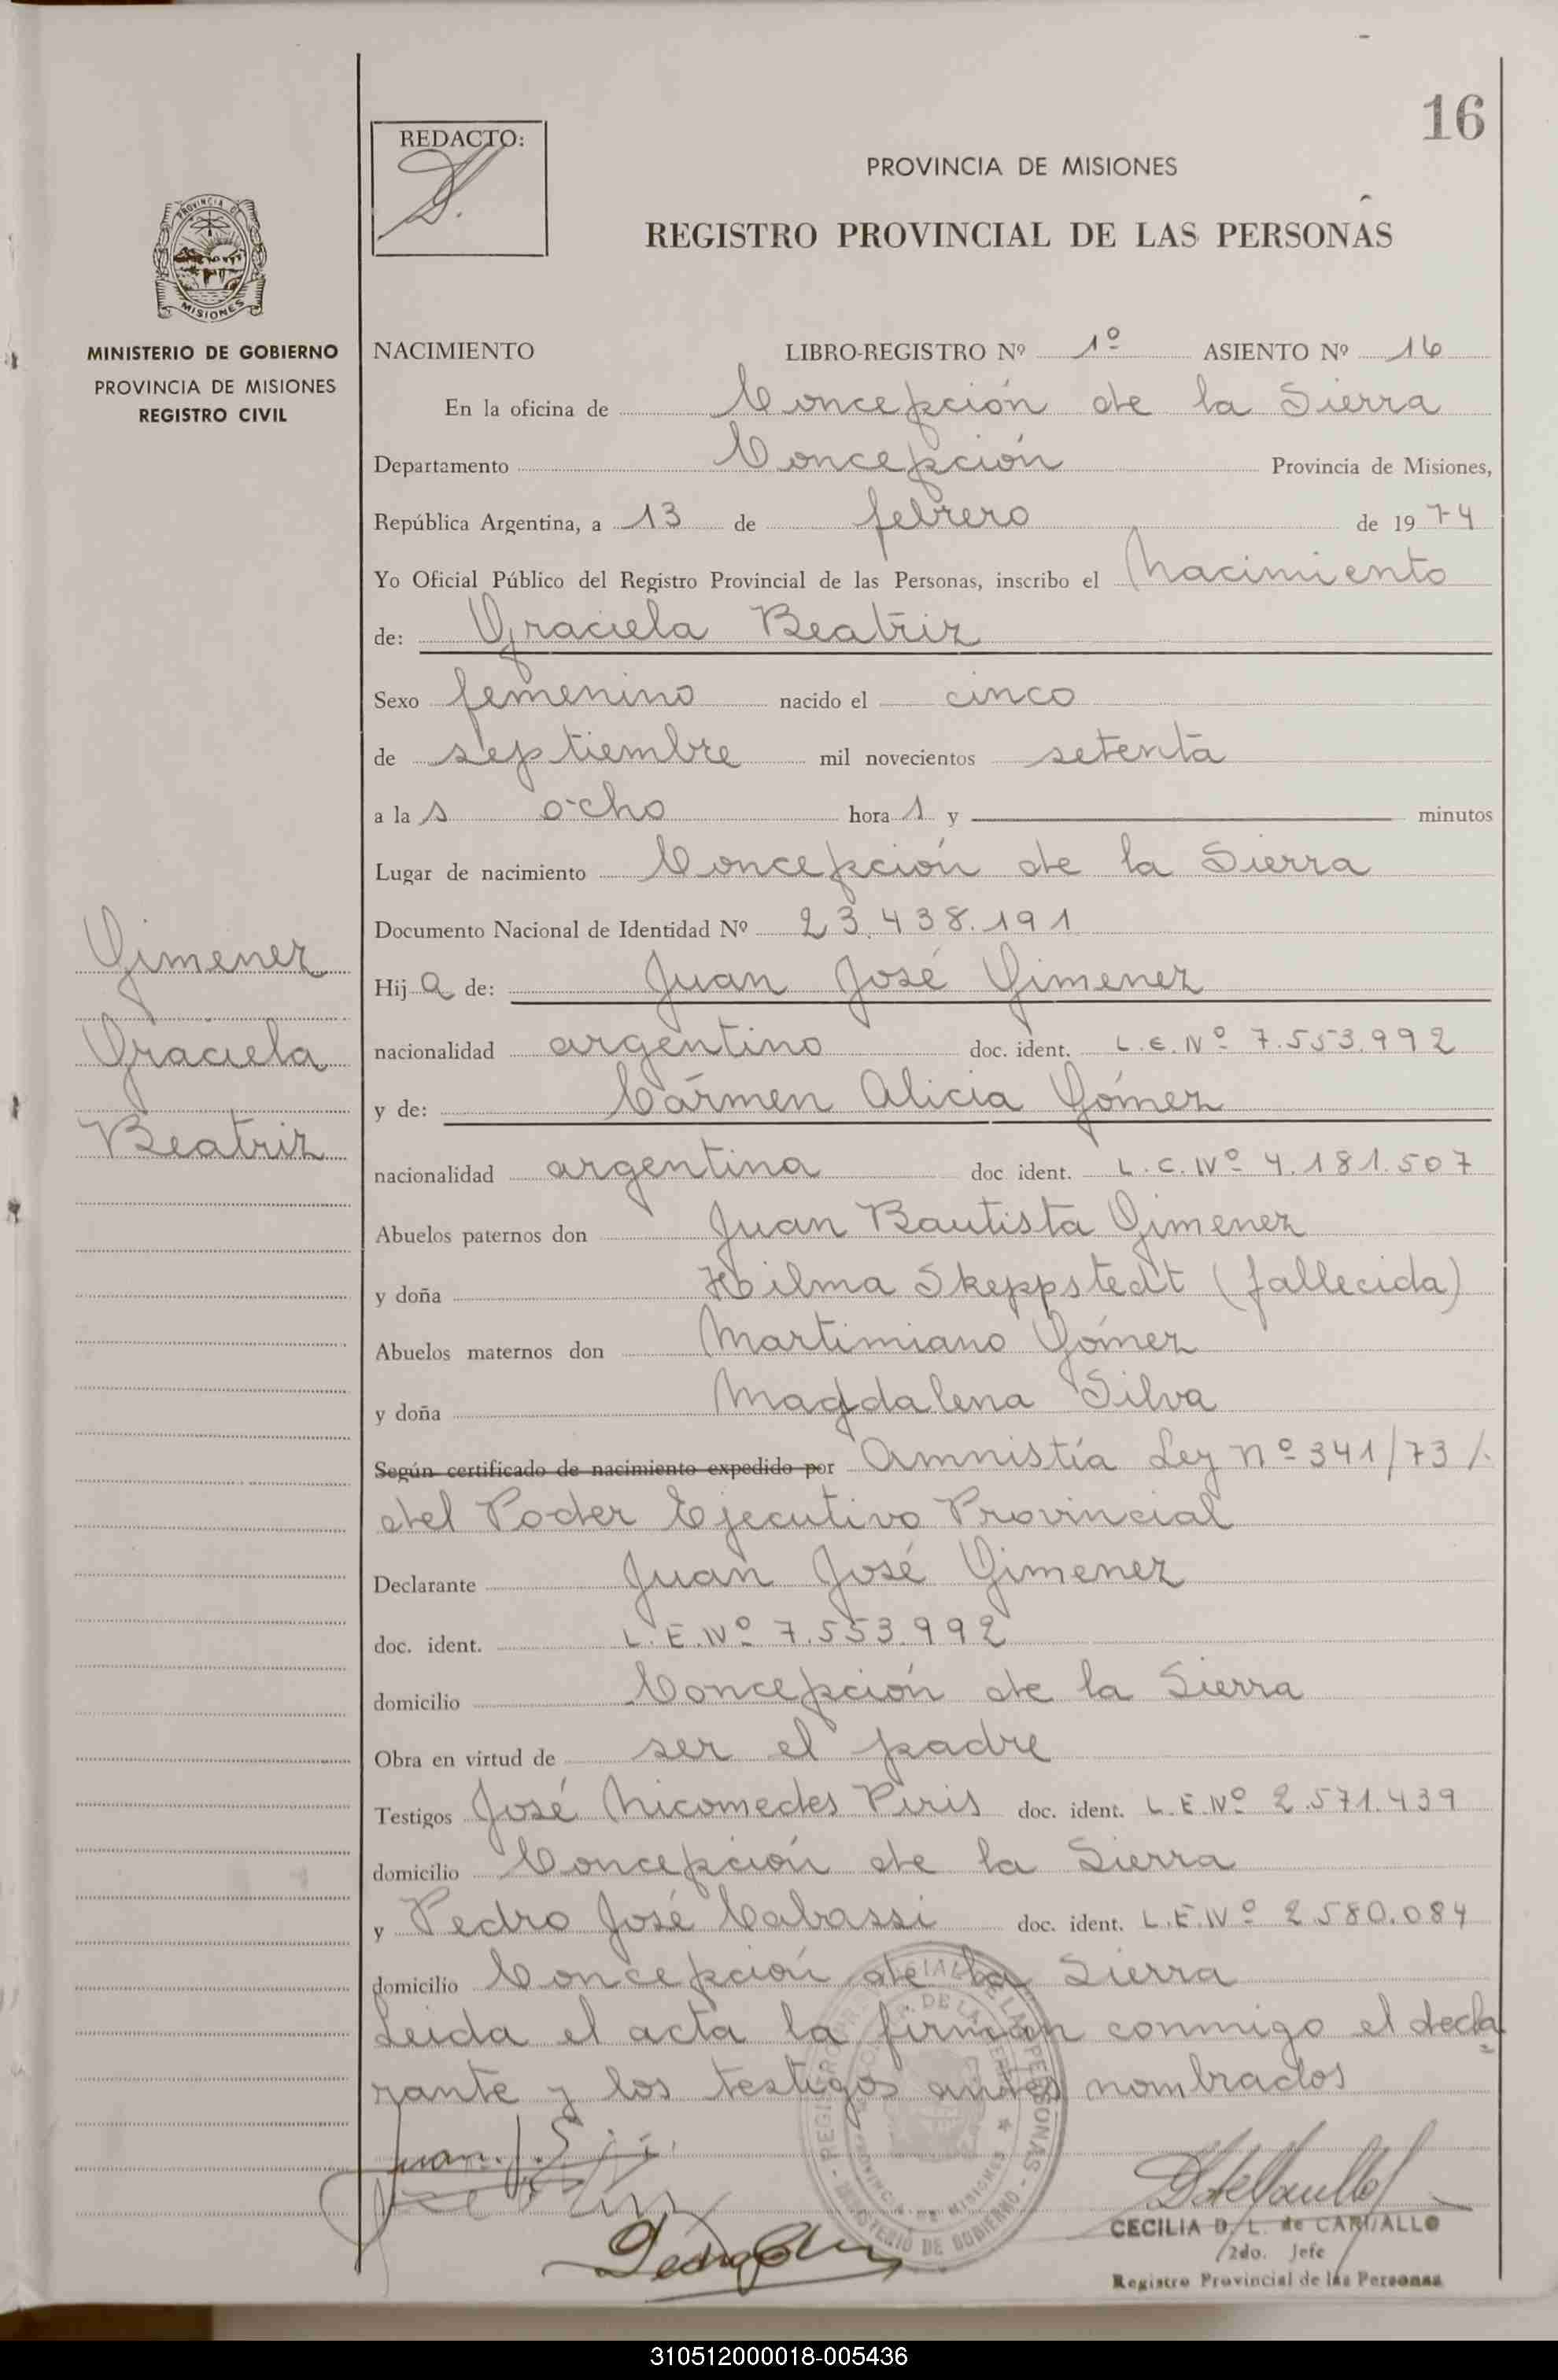 16
REDACTO:
PROVINCIA DE MISIONES
REGISTRO PROVINCIAL DE LAS PERSONAS
PROVINCIA DE
MISIONES
MINISTERIO DE GOBIERNO
PROVINCIA DE MISIONES
REGISTRO CIVIL
NACIMIENTO LIBRO-REGISTRO Nº 1º ASIENTO Nº 16
En la oficina de Concepción de la Sierra
Departamento Concepción Provincia de Misiones,
República Argentina, a 13 de febrero de 1974
Yo Oficial Público del Registro Provincial de las Personas, inscribo el Nacimiento
de: Graciela Beatriz
Sexo femenino nacido el cinco
de septiembre mil novecientos setenta
a las ocho horas y minutos
Lugar de nacimiento Concepción de la Sierra
Documento Nacional de Identidad Nº 23.438.191
Gimenez
Graciela
Beatriz
Hija de: Juan José Gimenez
nacionalidad argentino doc. ident. L.E. Nº 7.553.992
y de: Cármen Alicia Gómez
nacionalidad argentina doc ident. L.C. Nº 4.181.507
Abuelos paternos don Juan Bautista Gimenez
y doña Hilma Skeppstedt (fallecida)
Abuelos maternos don Martimiano Gómez
y doña Magdalena Silva
Según certificado de nacimiento expedido por Amnistía Ley nº 341/73/.
del Poder Ejecutivo Provincial
Declarante Juan José Gimenez
doc. ident. L.E. Nº 7.553.992
domicilio Concepción de la Sierra
Obra en virtud de ser el padre
Testigos José Nicomedes Piris doc. ident. L.E. Nº 2.571.439
domicilio Concepción de la Sierra
y Pedro José Cabassi doc. ident. L.E. Nº 2.580.084
domicilio Concepción de la Sierra
Leida el acta la firman conmigo el decla
rante y los testigos antes nombrados
Juan J.
CECILIA D. L. de CARVALLO
2do. Jefe
Registro Provincial de las Personas
310512000018-005436